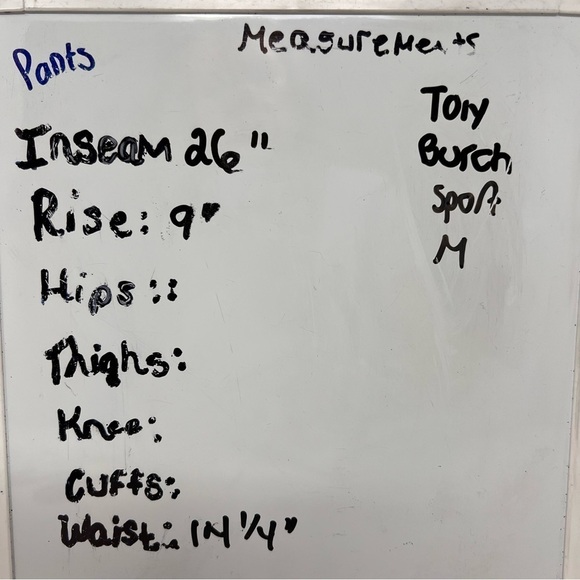 Measurements
Pants
Tory
Burch
Sport
M
Inseam 26"
Rise: 9"
Hips::
Thighs:
Knee:
Cuffs:
Waist: 14 1/4"